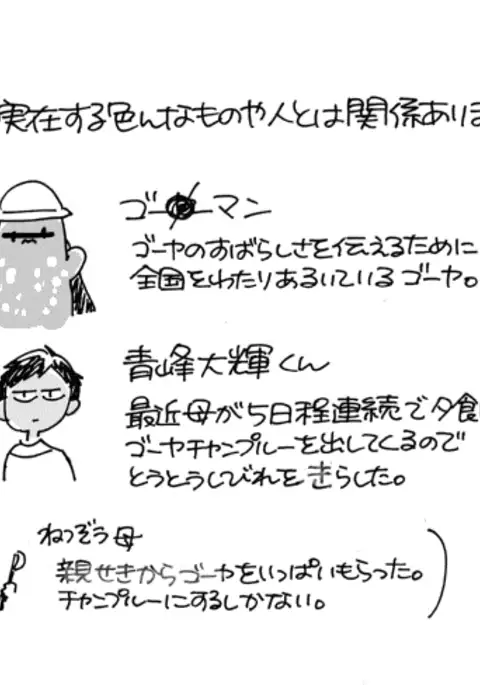 実在する色んなものや人とは関係ありま
ゴーマン
ゴーヤのすばらしさを伝えるために
全国をわたりあるいているゴーヤ。
青峰大輝くん
最近母が5日程連続で夕食
ゴーヤチャンプルーを出してくるので
とうとうしびれをきらした。
ねつぞう母
親せきからゴーヤをいっぱいもらった。
チャンプルーにするしかない。